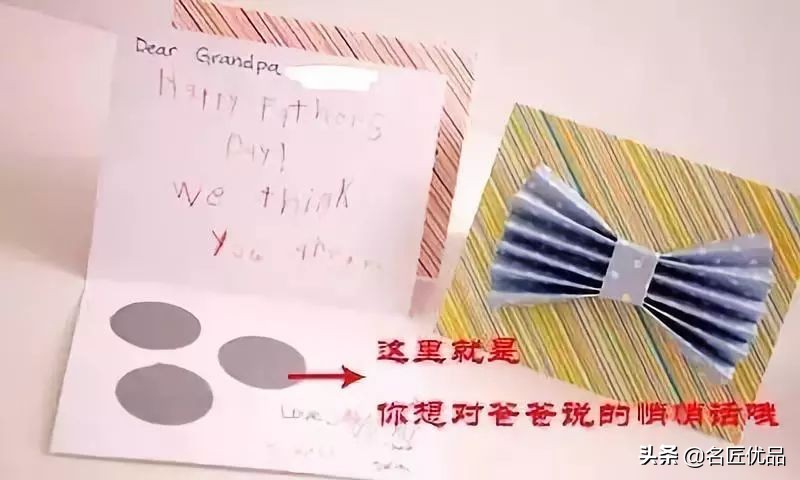 Dear Grandpa
Happy Father's
Day!
We think
You
Love,
这里就是
你想对爸爸说的悄悄话哦
头条 @名匠优品